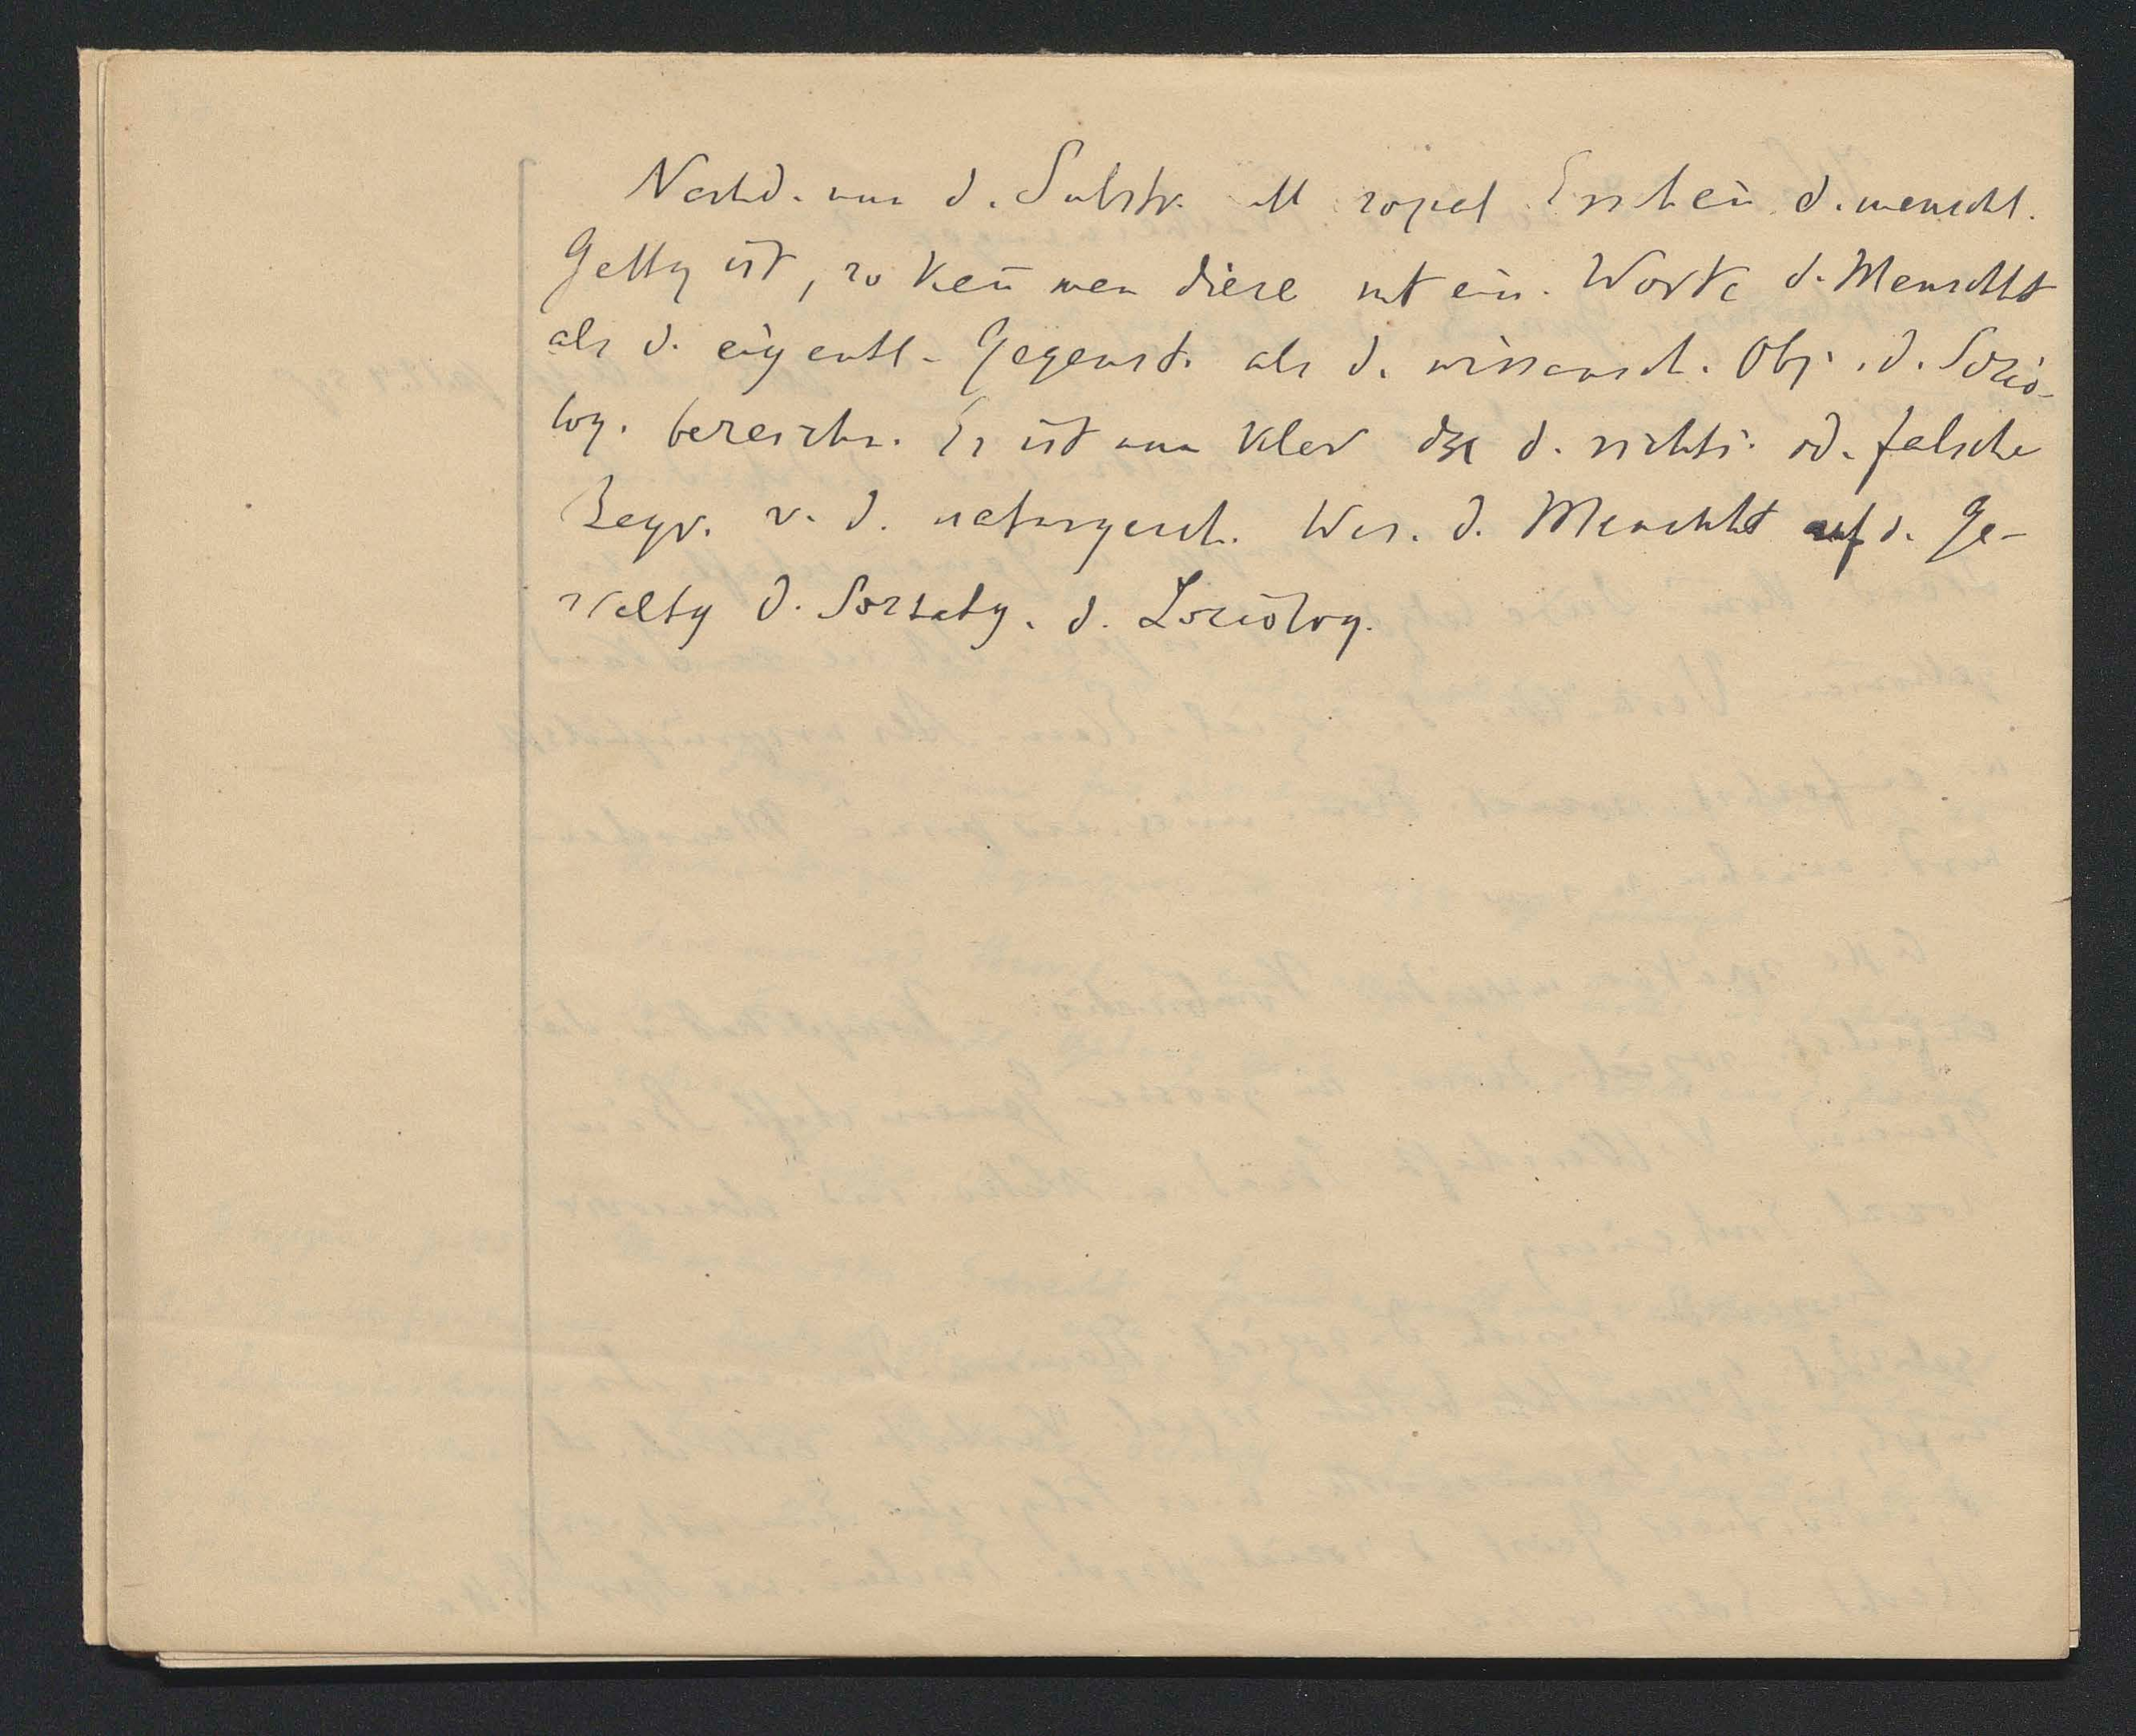 Nachd. nun d. Substr. all sozial Erschein d. menschl.
Gattg ist, so kan̄ man diese mt ein. Worte d. Menschht
als d. eigentl. Gegenst. als d. wissensch. Obj. d. Sozio-
log. bezeichn. Es ist nun klar dss d. richti. od. falsche
Begr. v. d. naturgesch. Wes. d. Menschht auf d. Ge-
staltg d. d. Soziolog.